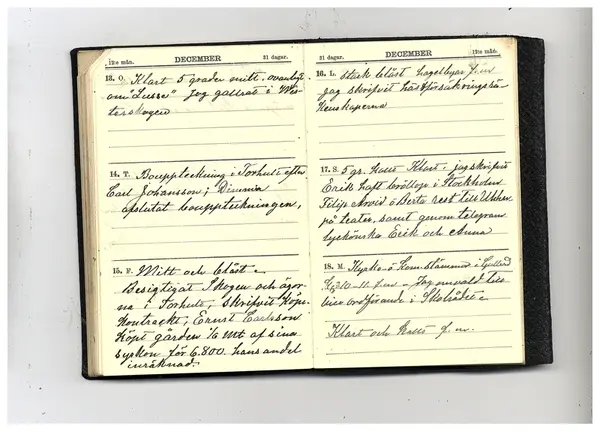 12te mån. DECEMBER 31 dagar.
13. O. Klart 5 grader mitt, ovanligt
om "Lusse" Jag gallrat i Wes-
terskogen
14. T. Bouppteckning i Torhult efter
Carl Johansson; Dimmia
afslutat bouppteckningen,
15. F. Mitt och blåst
Besigtigat Skogen och ägor-
na i Torhult, skrifvit Köpe-
kontrackt, Ernst Carlsson
Köpt gården 1/6 Mt. af sina
syskon för 6.800. hans andel
inräknad.
31 dagar. DECEMBER 12te mån.
16. L. Stark blåst hagelbyar f.m
jag skrifvit hästförsäkringshä-
17. S. 5 gr. Kallt Klart; jag skrifvit
Erik haft bröllop i Stockholm
Filip Arvid o Berta rest till
på teater, samt genom telegram
lyckönska Erik och Anna
18. M. Kyrko- o Kom.stämmor i Gullered
Kl 10-11 f.m - Jag omvald till
vice ordförande i Skolrådet
Klart och Kallt f.m.